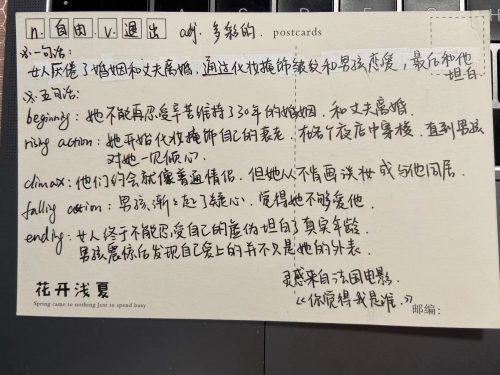 n. 自由 v. 退出 adj. 多彩的. postcards
※一句话:
女人厌倦了婚姻和丈夫离婚. 通过化妆掩饰皱纹和男孩恋爱, 最后和他
坦白
※五句话:
beginning: 她不能再忍受辛苦维持了30年的婚姻. 和丈夫离婚.
rising action: 她开始化妆掩饰自己的衰老. 在各个夜店中穿梭. 直到男孩
对她一见倾心.
climax: 他们约会就像普通情侣. 但她从不肯画淡妆或与他同居.
falling action: 男孩渐渐起了疑心. 觉得她不够爱他.
ending: 女人终于不能忍受自己的虚伪坦白了真实年龄.
男孩震惊后发现自己爱上的并不只是她的外表.
灵感来自法国电影
《你觉得我是谁.》
花开浅夏
Spring came to nothing Just to spend busy
邮编: